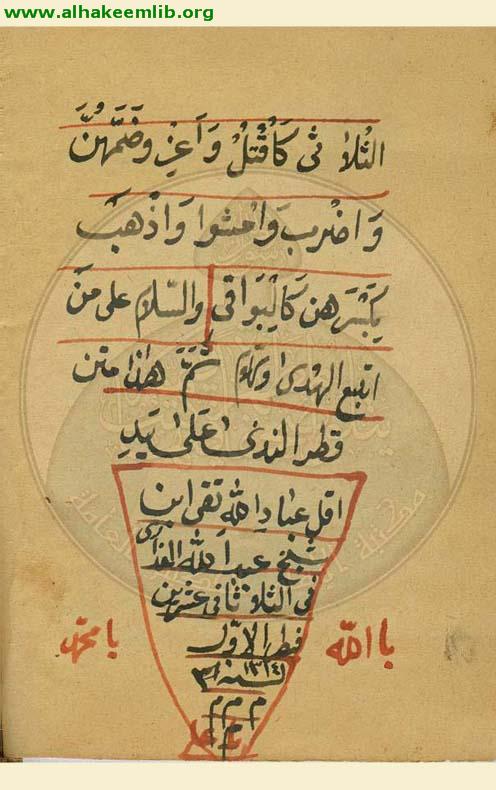 www.alhakeemlib.org
الثُلاثى كَاُقْتُلْ وَاَغزِ وضَمَّهُنَّ
وَاضرب وَامشوا وَاذْهب
يكَسْر هن كَالبَواقى والسّلام على منَ
اتبع الهدىٰ تمَّ هٰذا متن
قطر الندىٰ عَلىٰ يَدِ
اقل عبادِ اللهِ تقى ابن
شيخ عبد اللّٰه
فى الثلاثا فى عشرين
فطر الاوّل
لسنه ١٣١٤
م م م
م
يا اللّٰه
يا محمّد